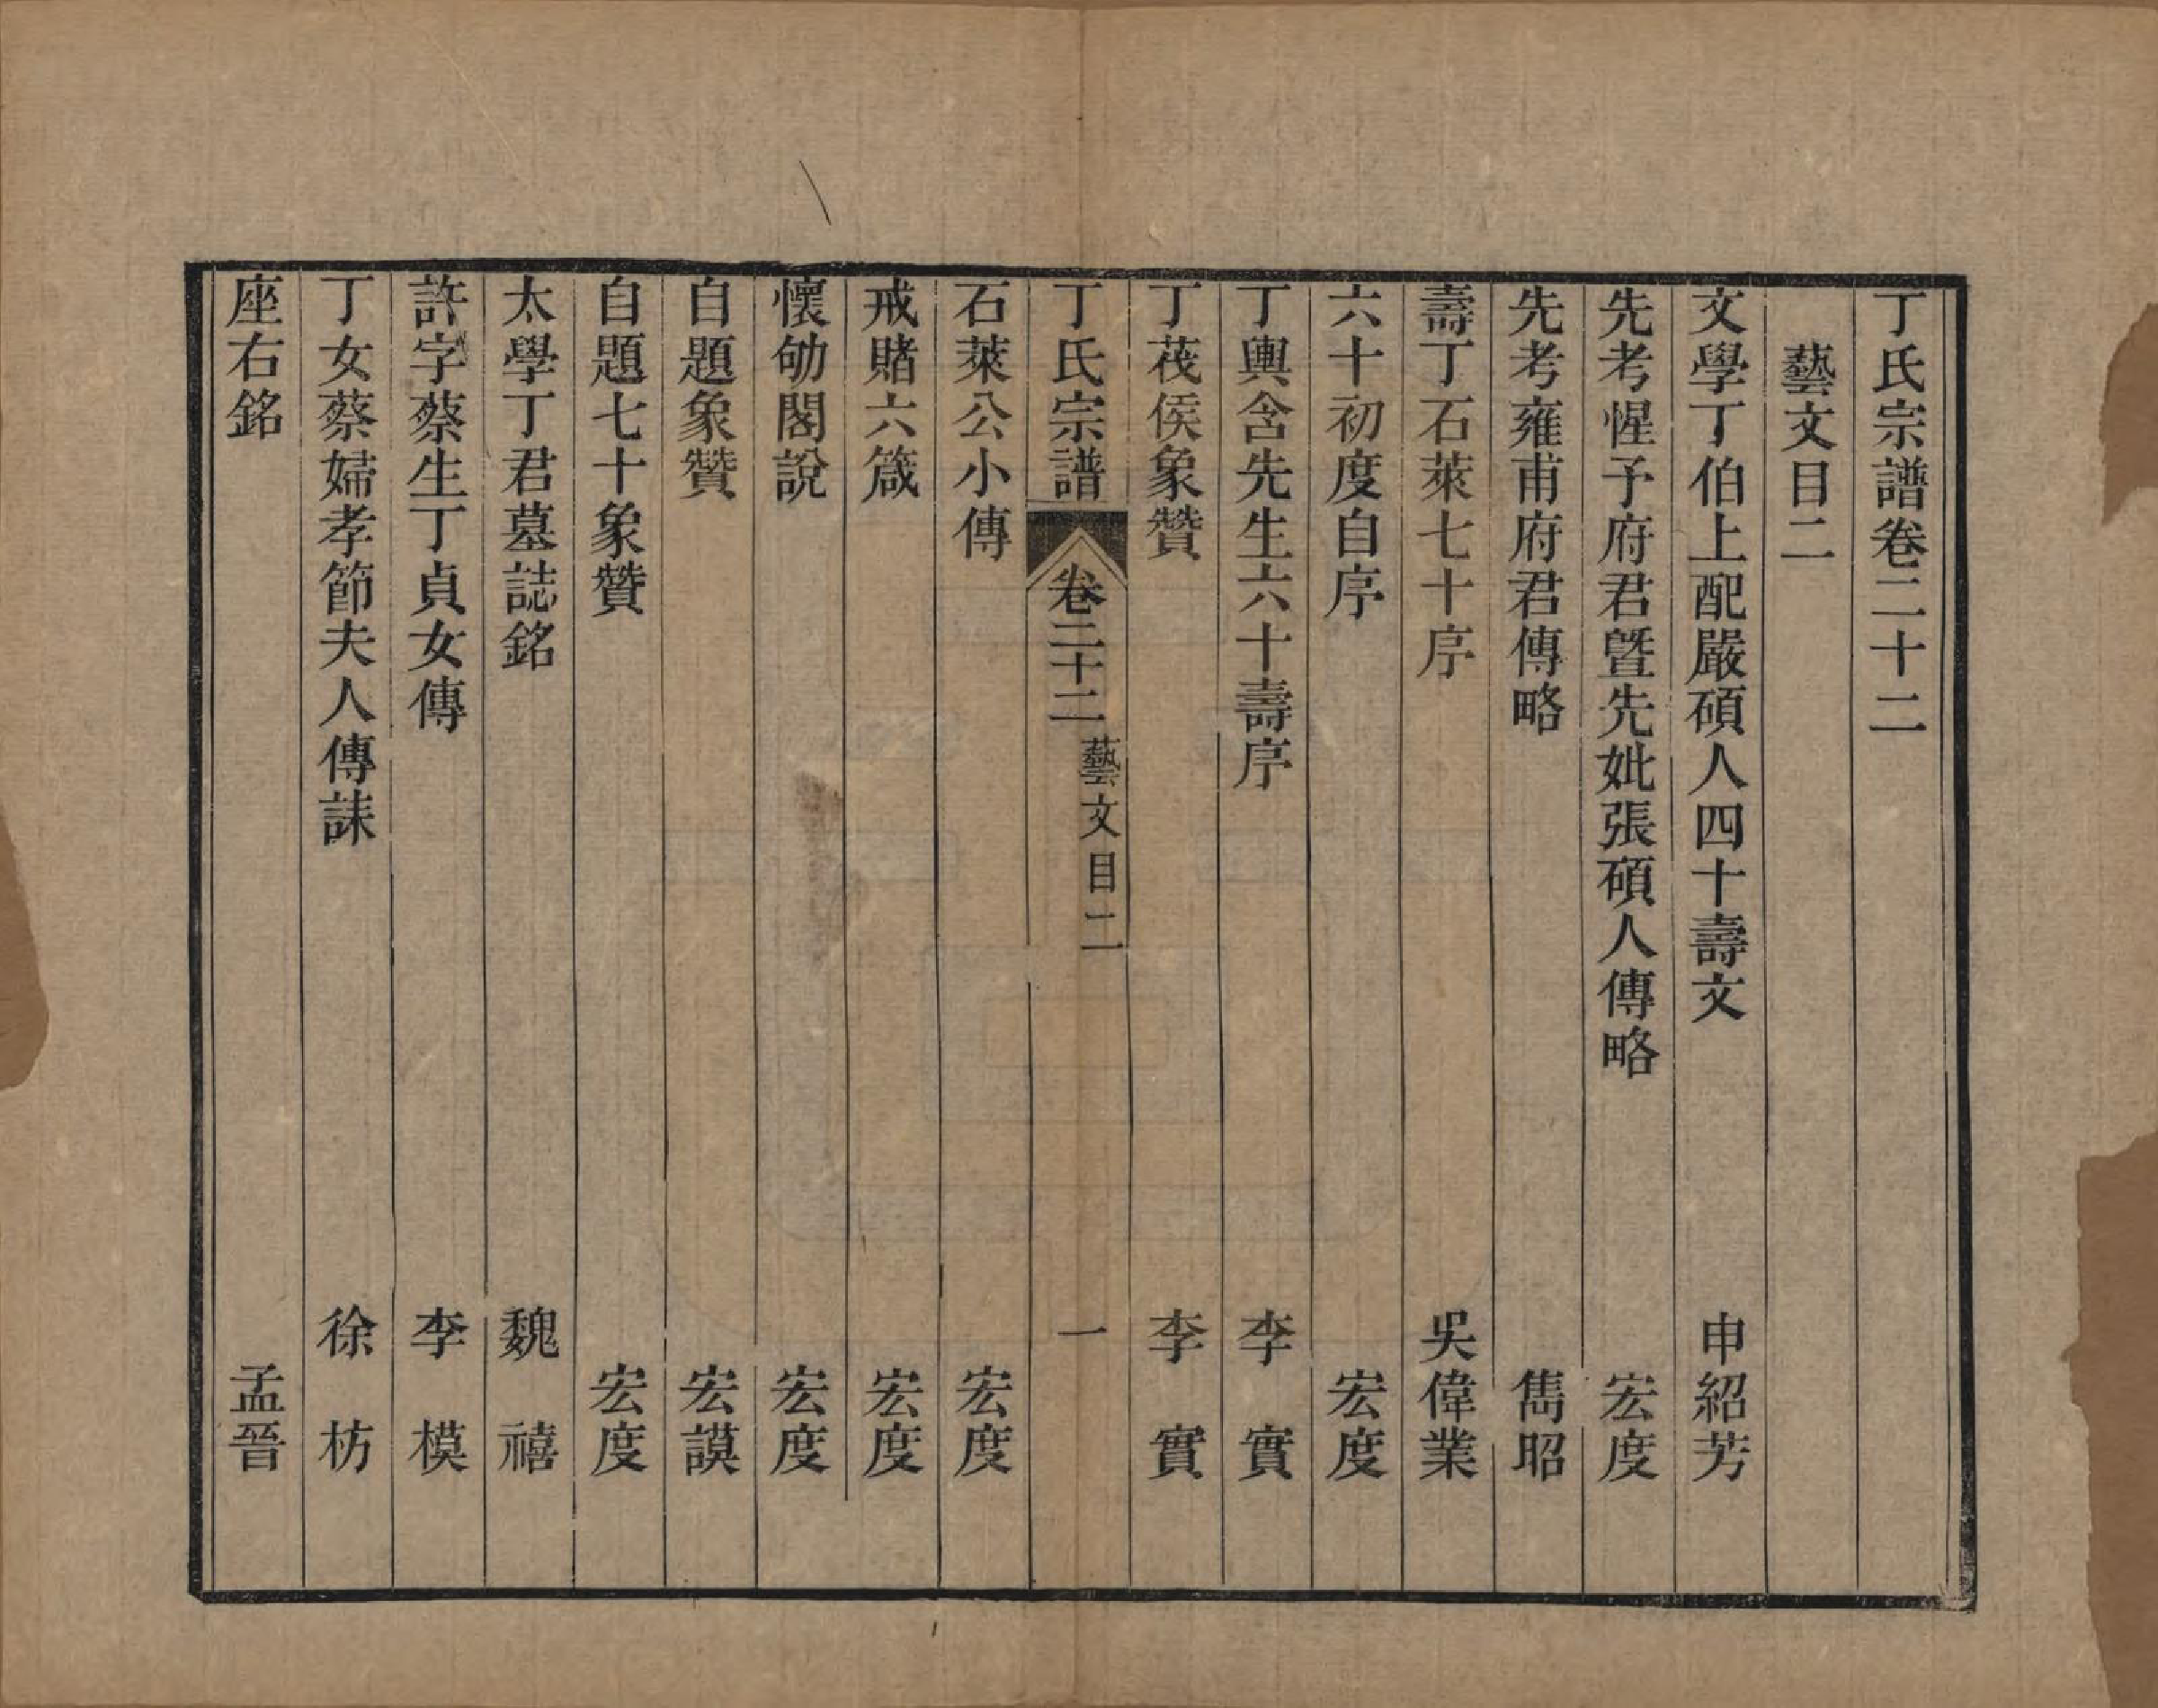 丁氏宗譜卷二十二
藝文目二
文學丁伯上配嚴碩人四十壽文　申紹芳
先考惺予府君曁先妣張碩人傳略　宏度
先考雍甫府君傳略　雋昭
壽丁石萊七十序　吳偉業
六十初度自序　宏度
丁輿含先生六十壽序　李　實
丁茷侯象贊　李　實
丁氏宗譜　卷二十二　藝文目二　一
石萊公小傳　宏度
戒賭六箴　宏度
懷劬閣說　宏度
自題象贊　宏謨
自題七十象贊　宏度
太學丁君墓誌銘　魏　禧
許字蔡生丁貞女傳　李　模
丁女蔡婦孝節夫人傳誄　徐　枋
座右銘　孟晉